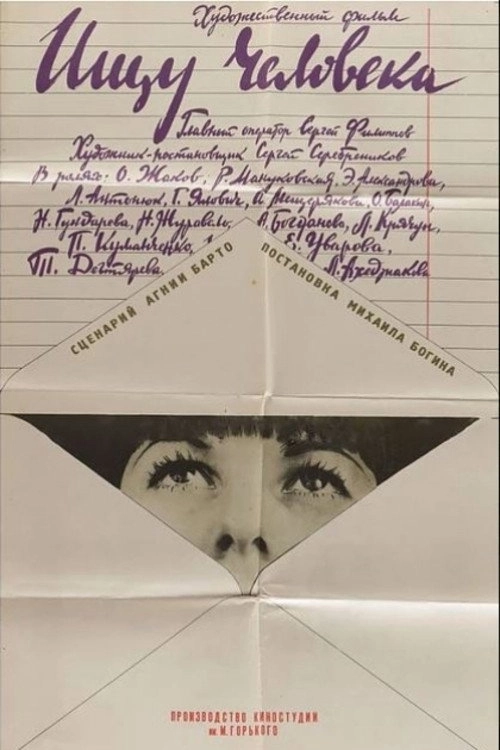 Художественный фильм
Ищу человека
Главный оператор Сергей Филиппов
Художник-постановщик Сергей Серебреников
В ролях: О. Жаков, Р. Мануковская, Э. Александрова,
Л. Антонюк, Г. Ялович, И. Мещерякова, О. Балакин,
Н. Гундарева, Н. Журавель, А. Богданова, Л. Крячун,
П. Куманченко, Е. Уварова,
Т. Дегтярева, Л. Ахеджакова
СЦЕНАРИЙ АГНИИ БАРТО
ПОСТАНОВКА МИХАИЛА БОГИНА
ПРОИЗВОДСТВО КИНОСТУДИИ
ИМ. М. ГОРЬКОГО